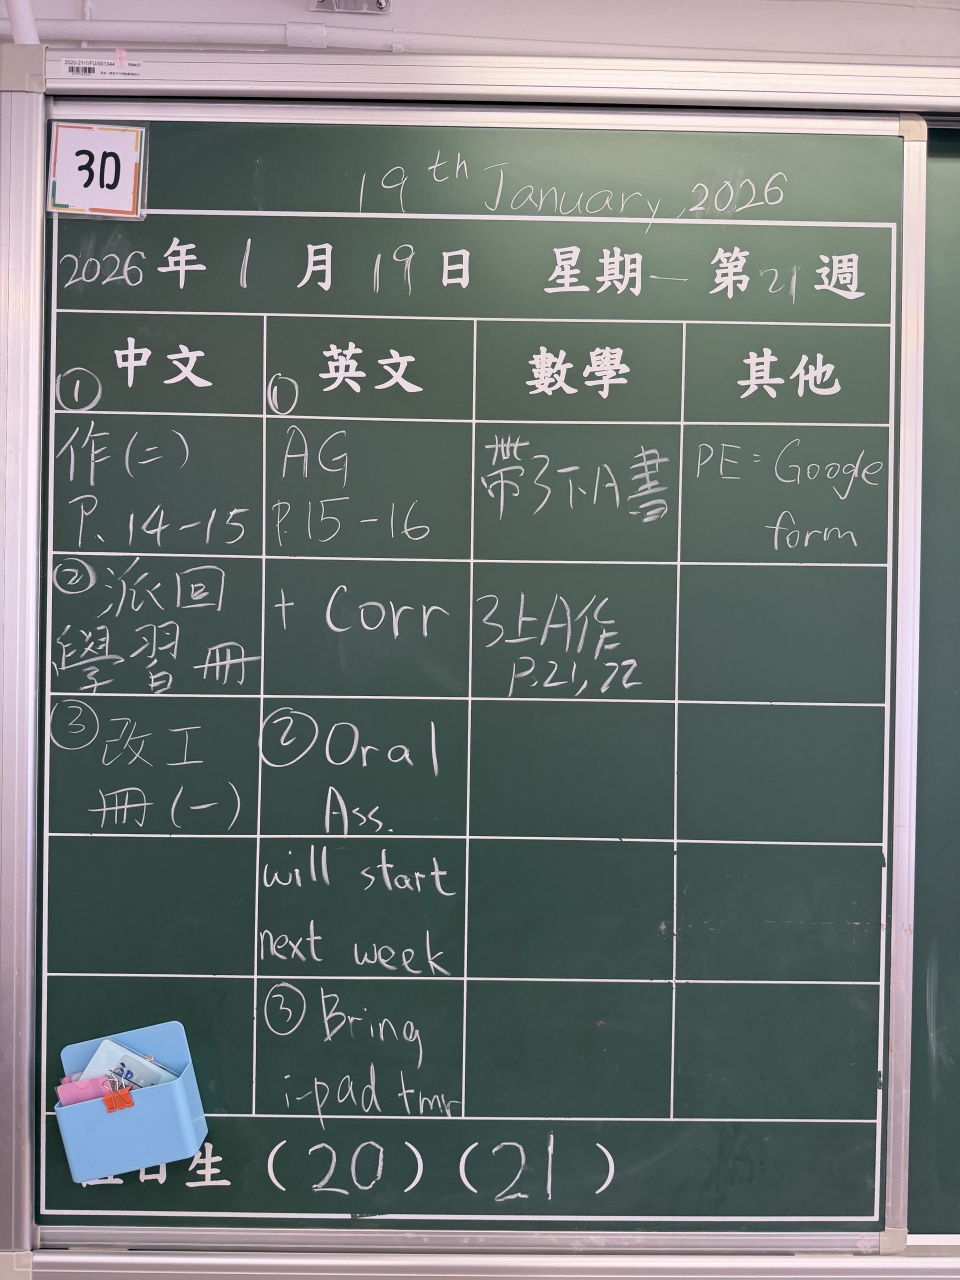 2020-21/1/FU/001344
3D
19th January, 2026
2026年1月19日 星期一 第21週
中文 英文 數學 其他
① ①
作(二)
P. 14-15
AG
P.15-16
帶3下A書
PE = Google
form
②派回
學習冊
+ Corr
3上A作
P.21, 22
③改工
冊(一)
②Oral
Ass.
will start
next week
③Bring
i-pad tmr
日生 (20) (21)